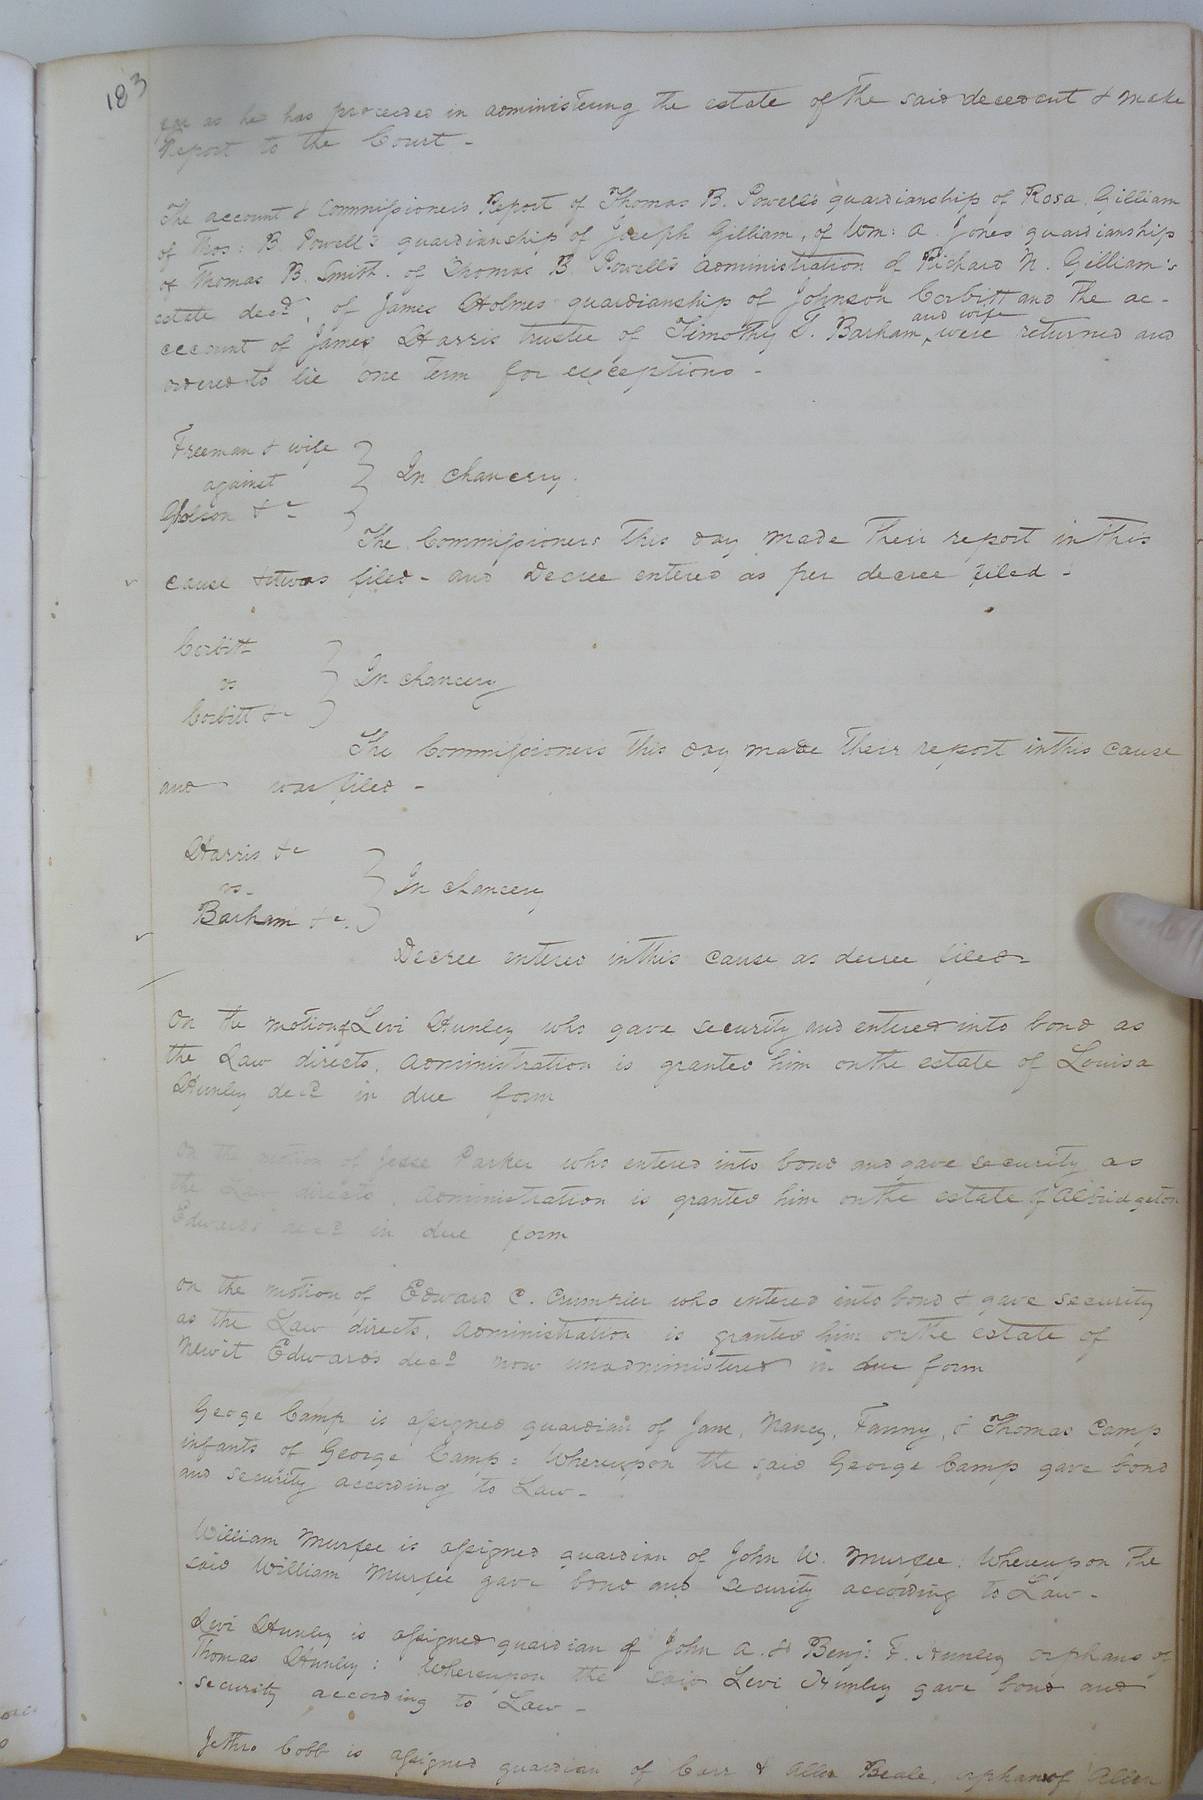 183
far as he has proceeded in administering the estate of the said decedent & make
Report to the Court -
The account & Commissioners Report of Thomas B. Powell's guardianship of Rosa Gilliam
of Thos: B. Powell's guardianship of Joseph Gilliam, of Wm: A. Jones guardianship
of Thomas B. Smith. of Thomas B. Powell's administration of Richard N. Gilliam's
estate decd, of James Holmes guardianship of Johnson Corbitt and the ac-
and wife
ccount of James Harris trustee of Timothy T. Barham were returned and
ordered to lie one Term for exceptions -
Freeman & wife
against
Gholson &c
In Chancery.
The Commissioners this day made their report in this
cause & was filed - and Decree entered as per decree filed -
Corbitt
vs
Corbitt &c
In chancery
The Commissioners this day made their report in this cause
and was filed -
Harris &c
vs -
Barham &c.
In chancery
Decree entered in this cause as decree filed -
On the motion of Levi Hunley who gave security and entered into bond as
the Law directs, administration is granted him on the estate of Louisa
Hunley decd in due form
On the motion of Jesse Parker who entered into bond and gave security as
the Law directs, administration is granted him on the estate of Albridgeton
Edwards decd in due form
On the motion of Edward C. Crumpler who entered into bond & gave security
as the Law directs, administration is granted him on the estate of
Newit Edwards decd now unadministered in due form
George Camp is assigned guardian of Jane, Nancy, Fanny, & Thomas Camp
infants of George Camp: Whereupon the said George Camp gave bond
and security according to Law -
William Murfee is assigned guardian of John W. Murfee: Whereupon the
said William Murfee gave bond and security according to Law -
Levi Hunley is assigned guardian of John A. & Benj: F. Hunley orphans of
Thomas Hunley: Whereupon the said Levi Hunley gave bond and
security according to Law -
Jethro Cobb is assigned guardian of Carr & Allen Beale, orphans of Allen